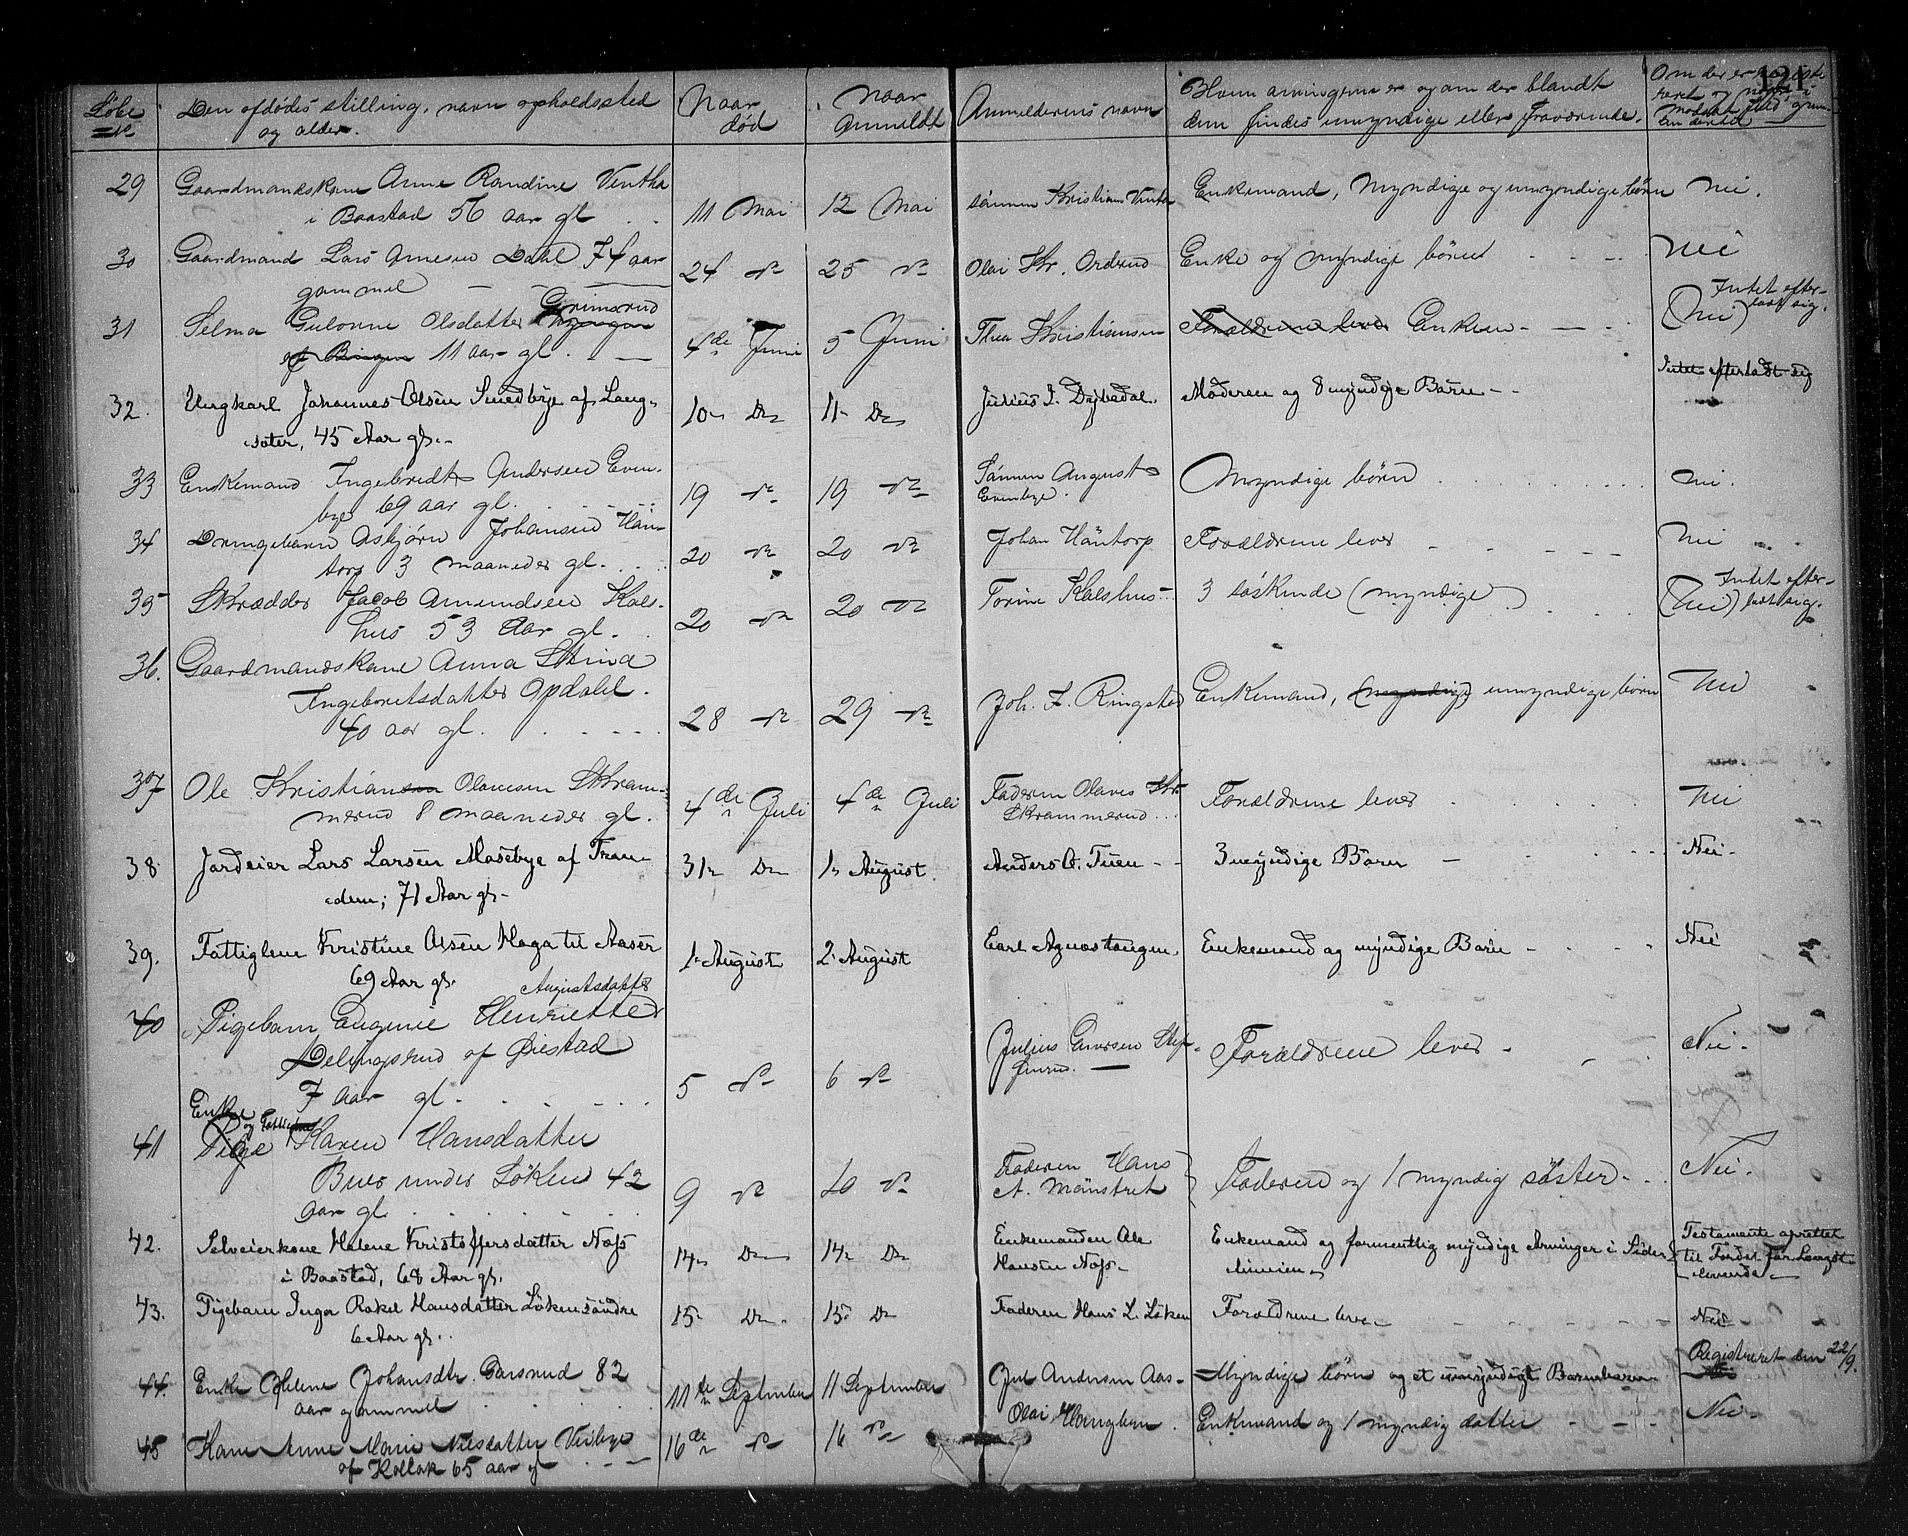 Løbe Den afdødes stilling, navn opholdssted og alder. Naar død Naar Anmeldt Anmelderens navn Hvem arvingerne er og om der blandt dem findes umyndige eller fraværende. Om der er
121
29 Gaardmandskone Anne Randine Ventha
i Baastad 56 aar gl 11 Mai 12 Mai sönnen Kristian Enkemand, Myndige og umyndige börn Nei.
30 Gaardmand Lars Arnesen Dahl 74 aar
gammel 24 do 25 do Olai Kr. Ordrud Enke og myndige börn Nei
31 Selma Gulovne Olsdatter Grimsrud
af Bingen 11 aar gl. 4de Juni 5 Juni Thea Kristiansen Forældrene lever Enken (Nei) Intet efter-
ladt sig.
32. Ungkarl Johannes Olsen Smedbye af Lang-
søter, 45 Aar gl. 10 Do 11 Do Julius J. Moderen og 8 myndige Børn Intet efterladt sig
33 Enkemand Ingebredt Andersen Even-
bye 69 aar gl. 19 do 19 do Sönnen August
Evenbye. Myndige börn Nei.
34 Drengebarn Asbjørn Johansen Hän-
torp 3 maaneder gl. 20 do 20 do Johan Häntorp Forældrene lever Nei
35 Skrædder Jacob Amundsen Kals-
hus 53 Aar gl. 20 do 20 do Torine Kalshus 3 søskende (myndige) (Nei) Intet efter-
ladt sig.
36. Gaardmandskone Anna
Ingeboretsdatter Opdahl.
40 aar gl. 28 do 29 do Joh. J. Ringstad Enkemand, (myndige) umyndige börn Nei
37 Ole Kristiansen Olavesen Skram-
merud 8 maaneder gl. 4de Juli 4de Juli Faderen Olaves Kr.
Skrammerud Forældrene lever Nei
38 Jordeier Lars Larsen Mosebye af Tran-
; 71 Aar gl. 31 Do 1 August. Anders O. Tuen 3 myndige Børn Nei.
39. Fattiglem Kristine Olsen Haga til Aaser
69 Aar gl. 1 August 2 August Carl Agnastangen Enkemand og myndige Børn Nei
40 Pigebarn Eugenie Henriette Augustsdatter
Delingsrud af Øiestad
7 aar gl. 5 do 6 do Julius Forældrene lever Nei.
41 Enke og Fattiglem Pige Karen Hansdatter
Buer under Löken 42
aar gl. 9 do 10 do Faderen Hans
A. Mönstret Faderen og 1 myndig søster Nei.
42. Selveierkone Helene Kristoffersdatter Næs
i Baastad, 68 Aar gl. 14 Do 14 Do Enkemanden Ole
Hansen Næs Enkemand og formentlig myndige Arvinger i Side-
linien Testamente oprettet
til Fordel for Længst-
levende
43. Pigebarn Inga Rakel Hansdatter Løken søndre
6 Aar gl. 15 Do 15 Do Faderen Hans L. Løken Forældrene leve Nei
44. Enke Helene Johansdtr. 82
aar gammel 11te September 11 September Andersen Aas Myndige börn og et umyndigt Barnebarn Registreret den 22/9.
45 Kone Anne Marie Nilsdatter
af Kollak 65 aar gl 16de do 16 do Olai Haugbem Enkemand og 1 myndig datter Nei